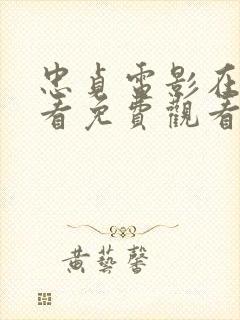 忠貞電影在
看免費觀看
黃藝馨